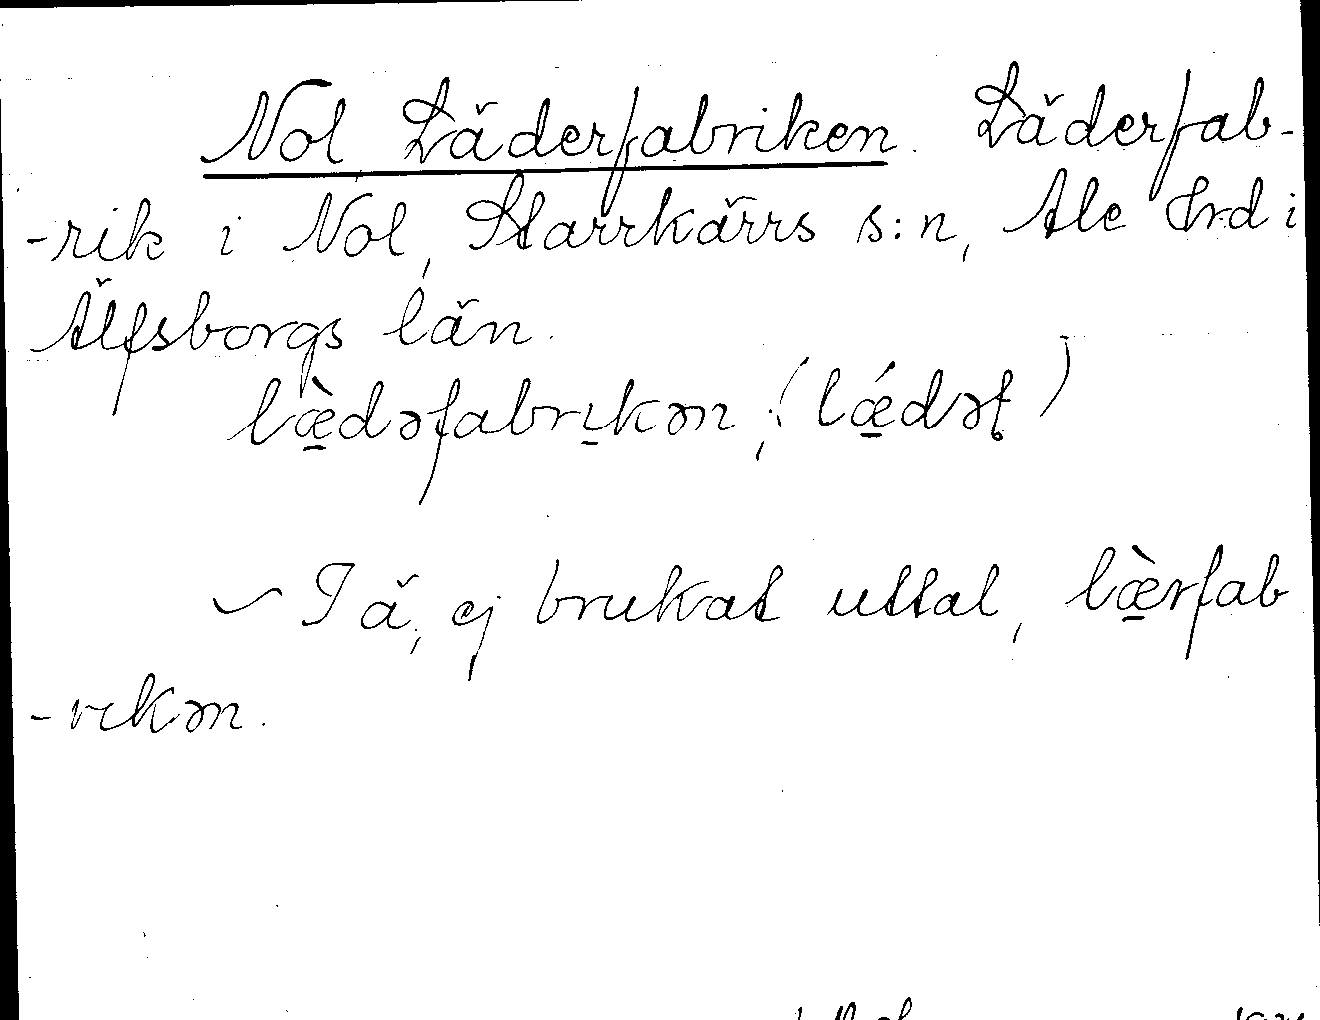 Nol Läderfabriken. Läderfab-
-rik i Nol, Starrkärrs s:n, Ale hrd i
Älfsborgs län.
læ̀dəfabrikən, (lǽdət)
Tä, ej brukat uttal, læ̀rfab
-rikən.